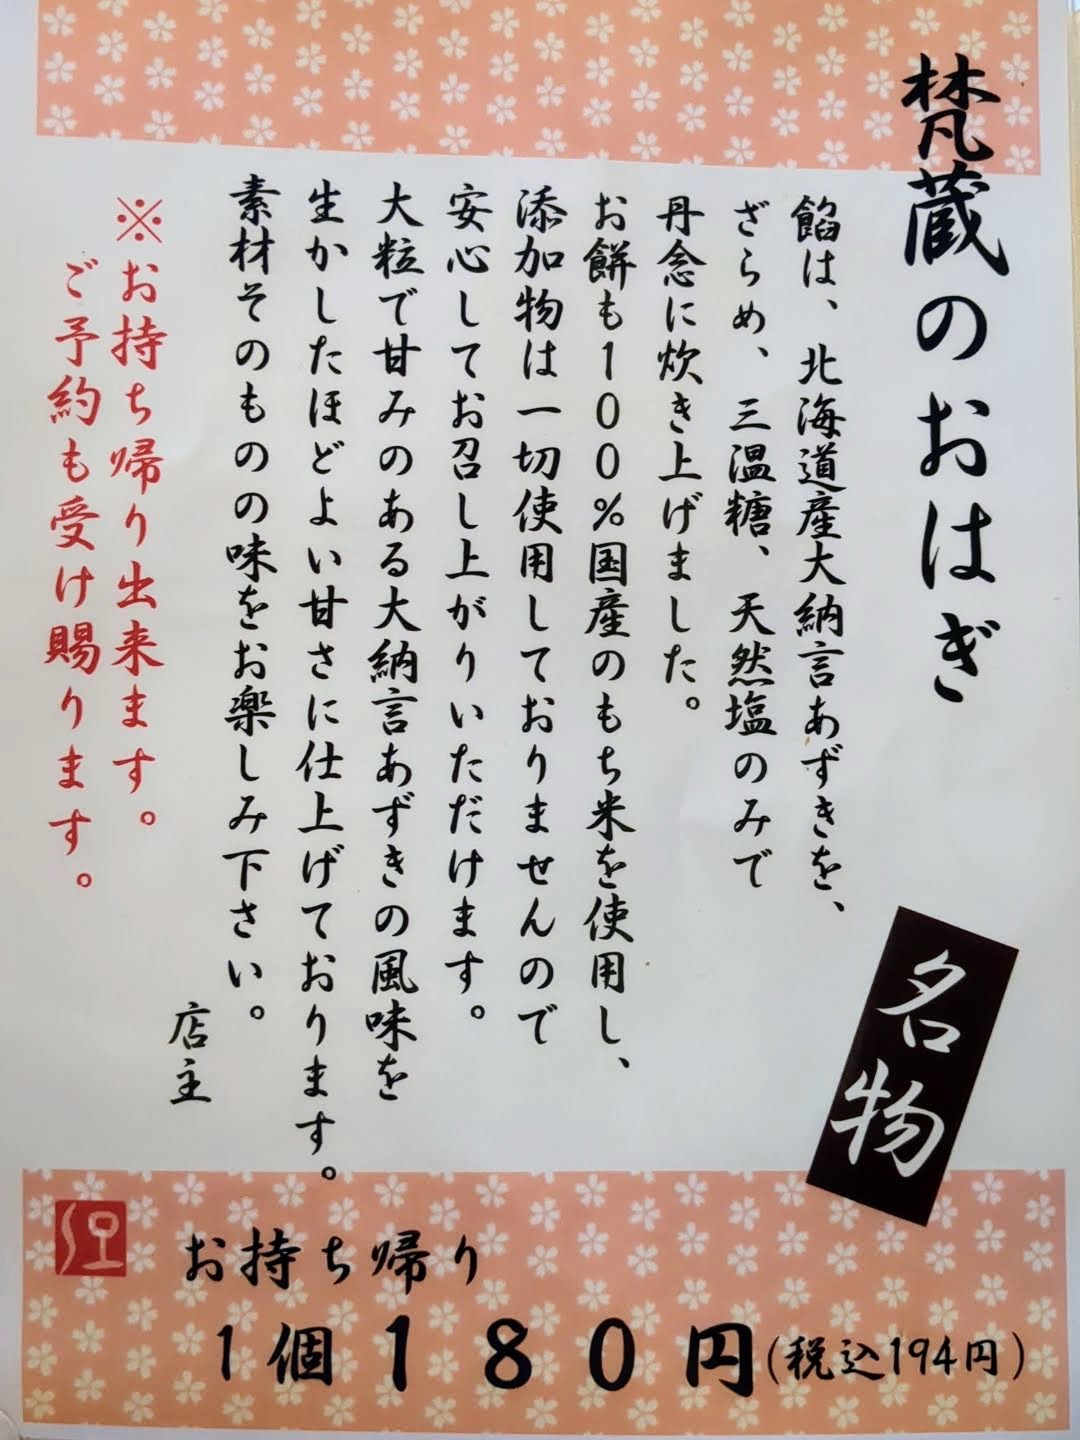 梵蔵のおはぎ
名物
餡は、北海道産大納言あずきを、
ざらめ、三温糖、天然塩のみで
丹念に炊き上げました。
お餅も100%国産のもち米を使用し、
添加物は一切使用しておりませんので
安心してお召し上がりいただけます。
大粒で甘みのある大納言あずきの風味を
生かしたほどよい甘さに仕上げております。
素材そのものの味をお楽しみ下さい。
店主
※お持ち帰り出来ます。
ご予約も受け賜ります。
お持ち帰り
1個180円(税込194円)